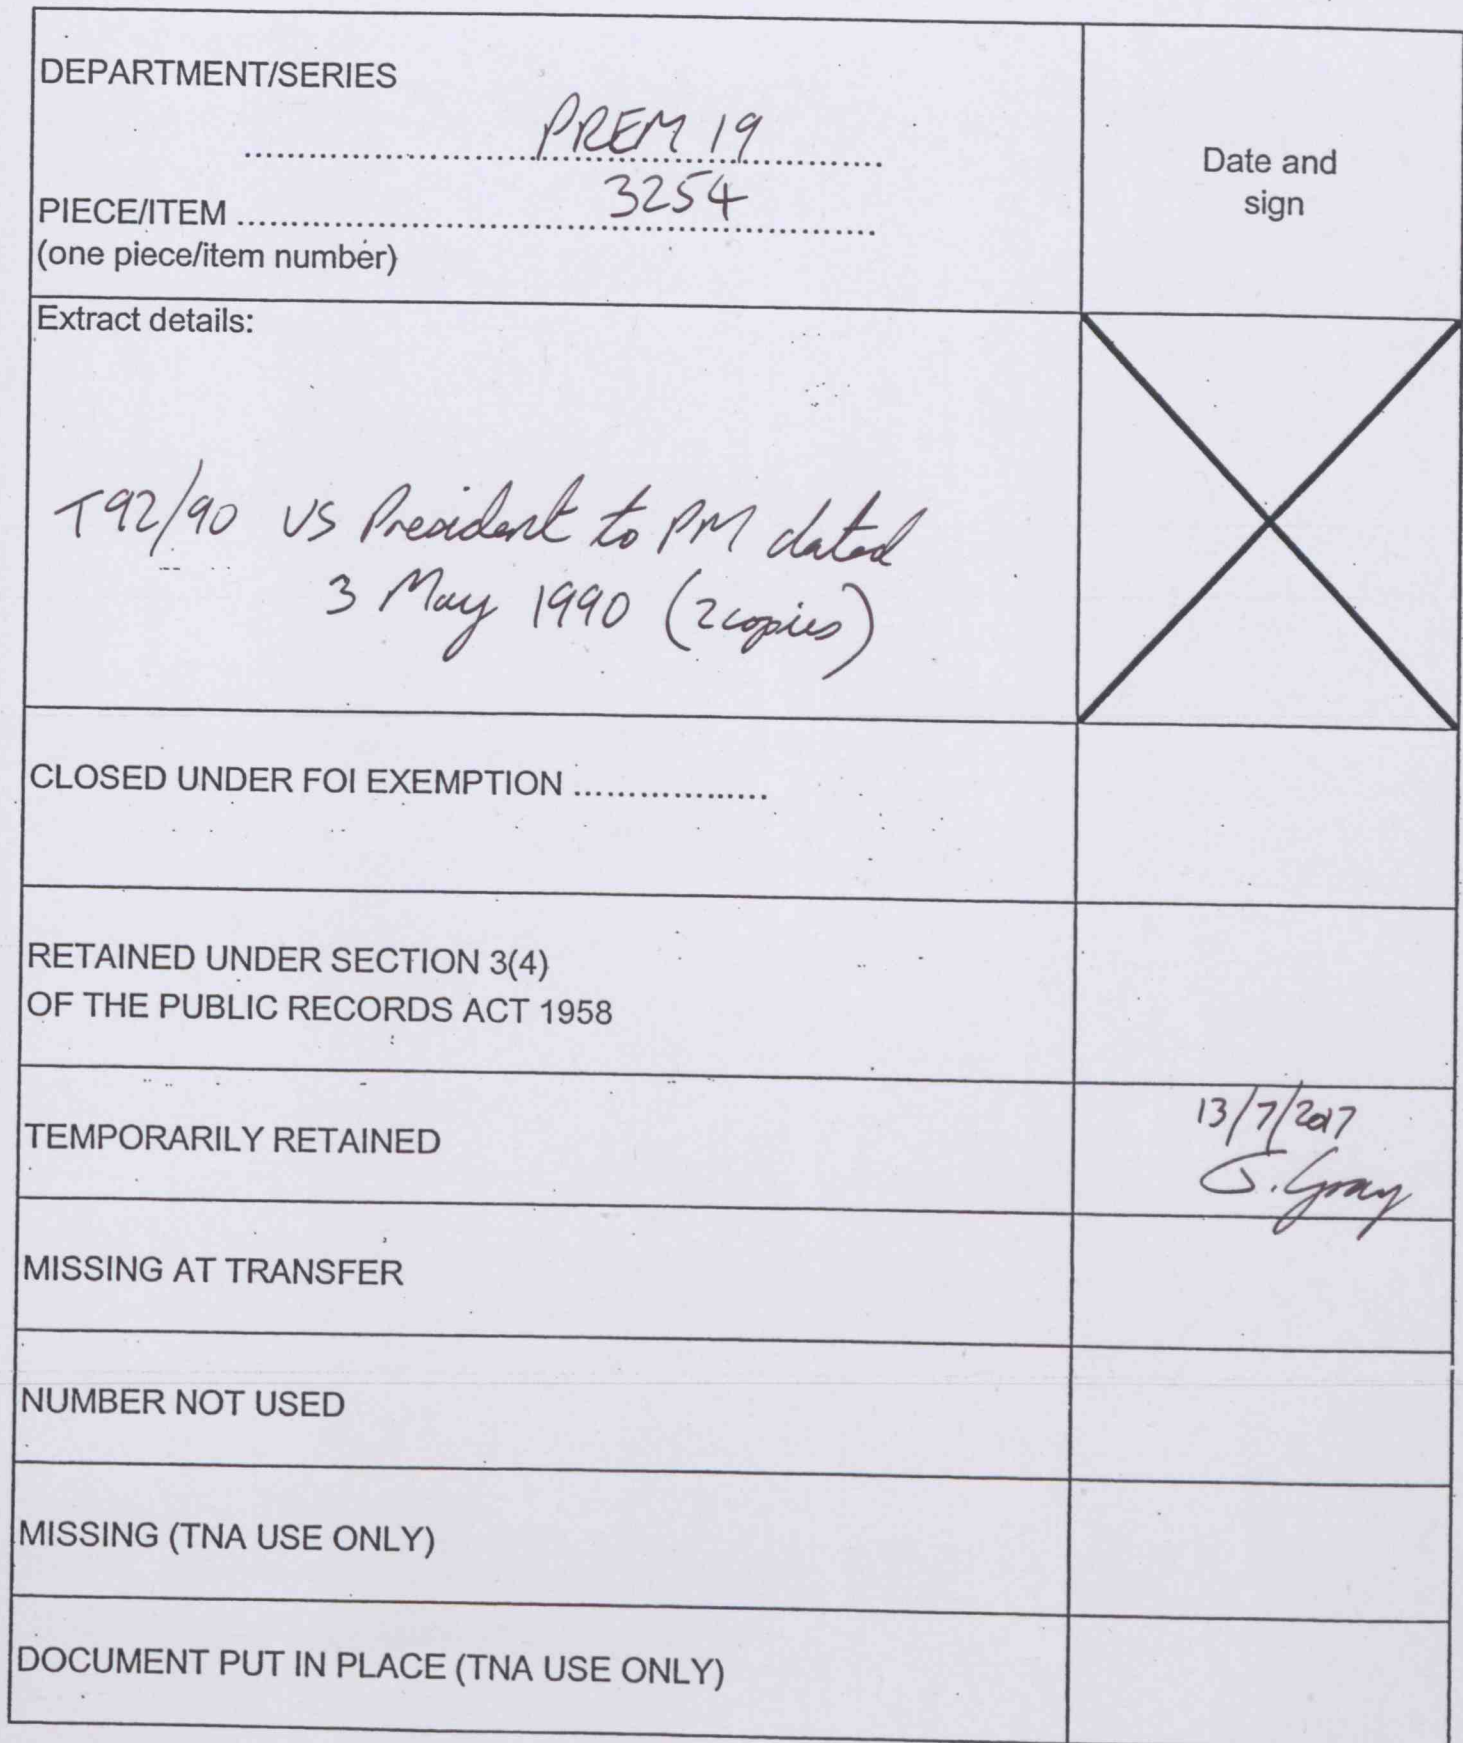 DEPARTMENT/SERIES
PREM 19
Date and
sign
PIECE/ITEM 3254
(one piece/item number)
Extract details:
T92/90 US President to PM dated
3 May 1990 (2 copies)
CLOSED UNDER FOI EXEMPTION ..................
RETAINED UNDER SECTION 3(4)
OF THE PUBLIC RECORDS ACT 1958
TEMPORARILY RETAINED
13/7/2017
J. Gray
MISSING AT TRANSFER
NUMBER NOT USED
MISSING (TNA USE ONLY)
DOCUMENT PUT IN PLACE (TNA USE ONLY)